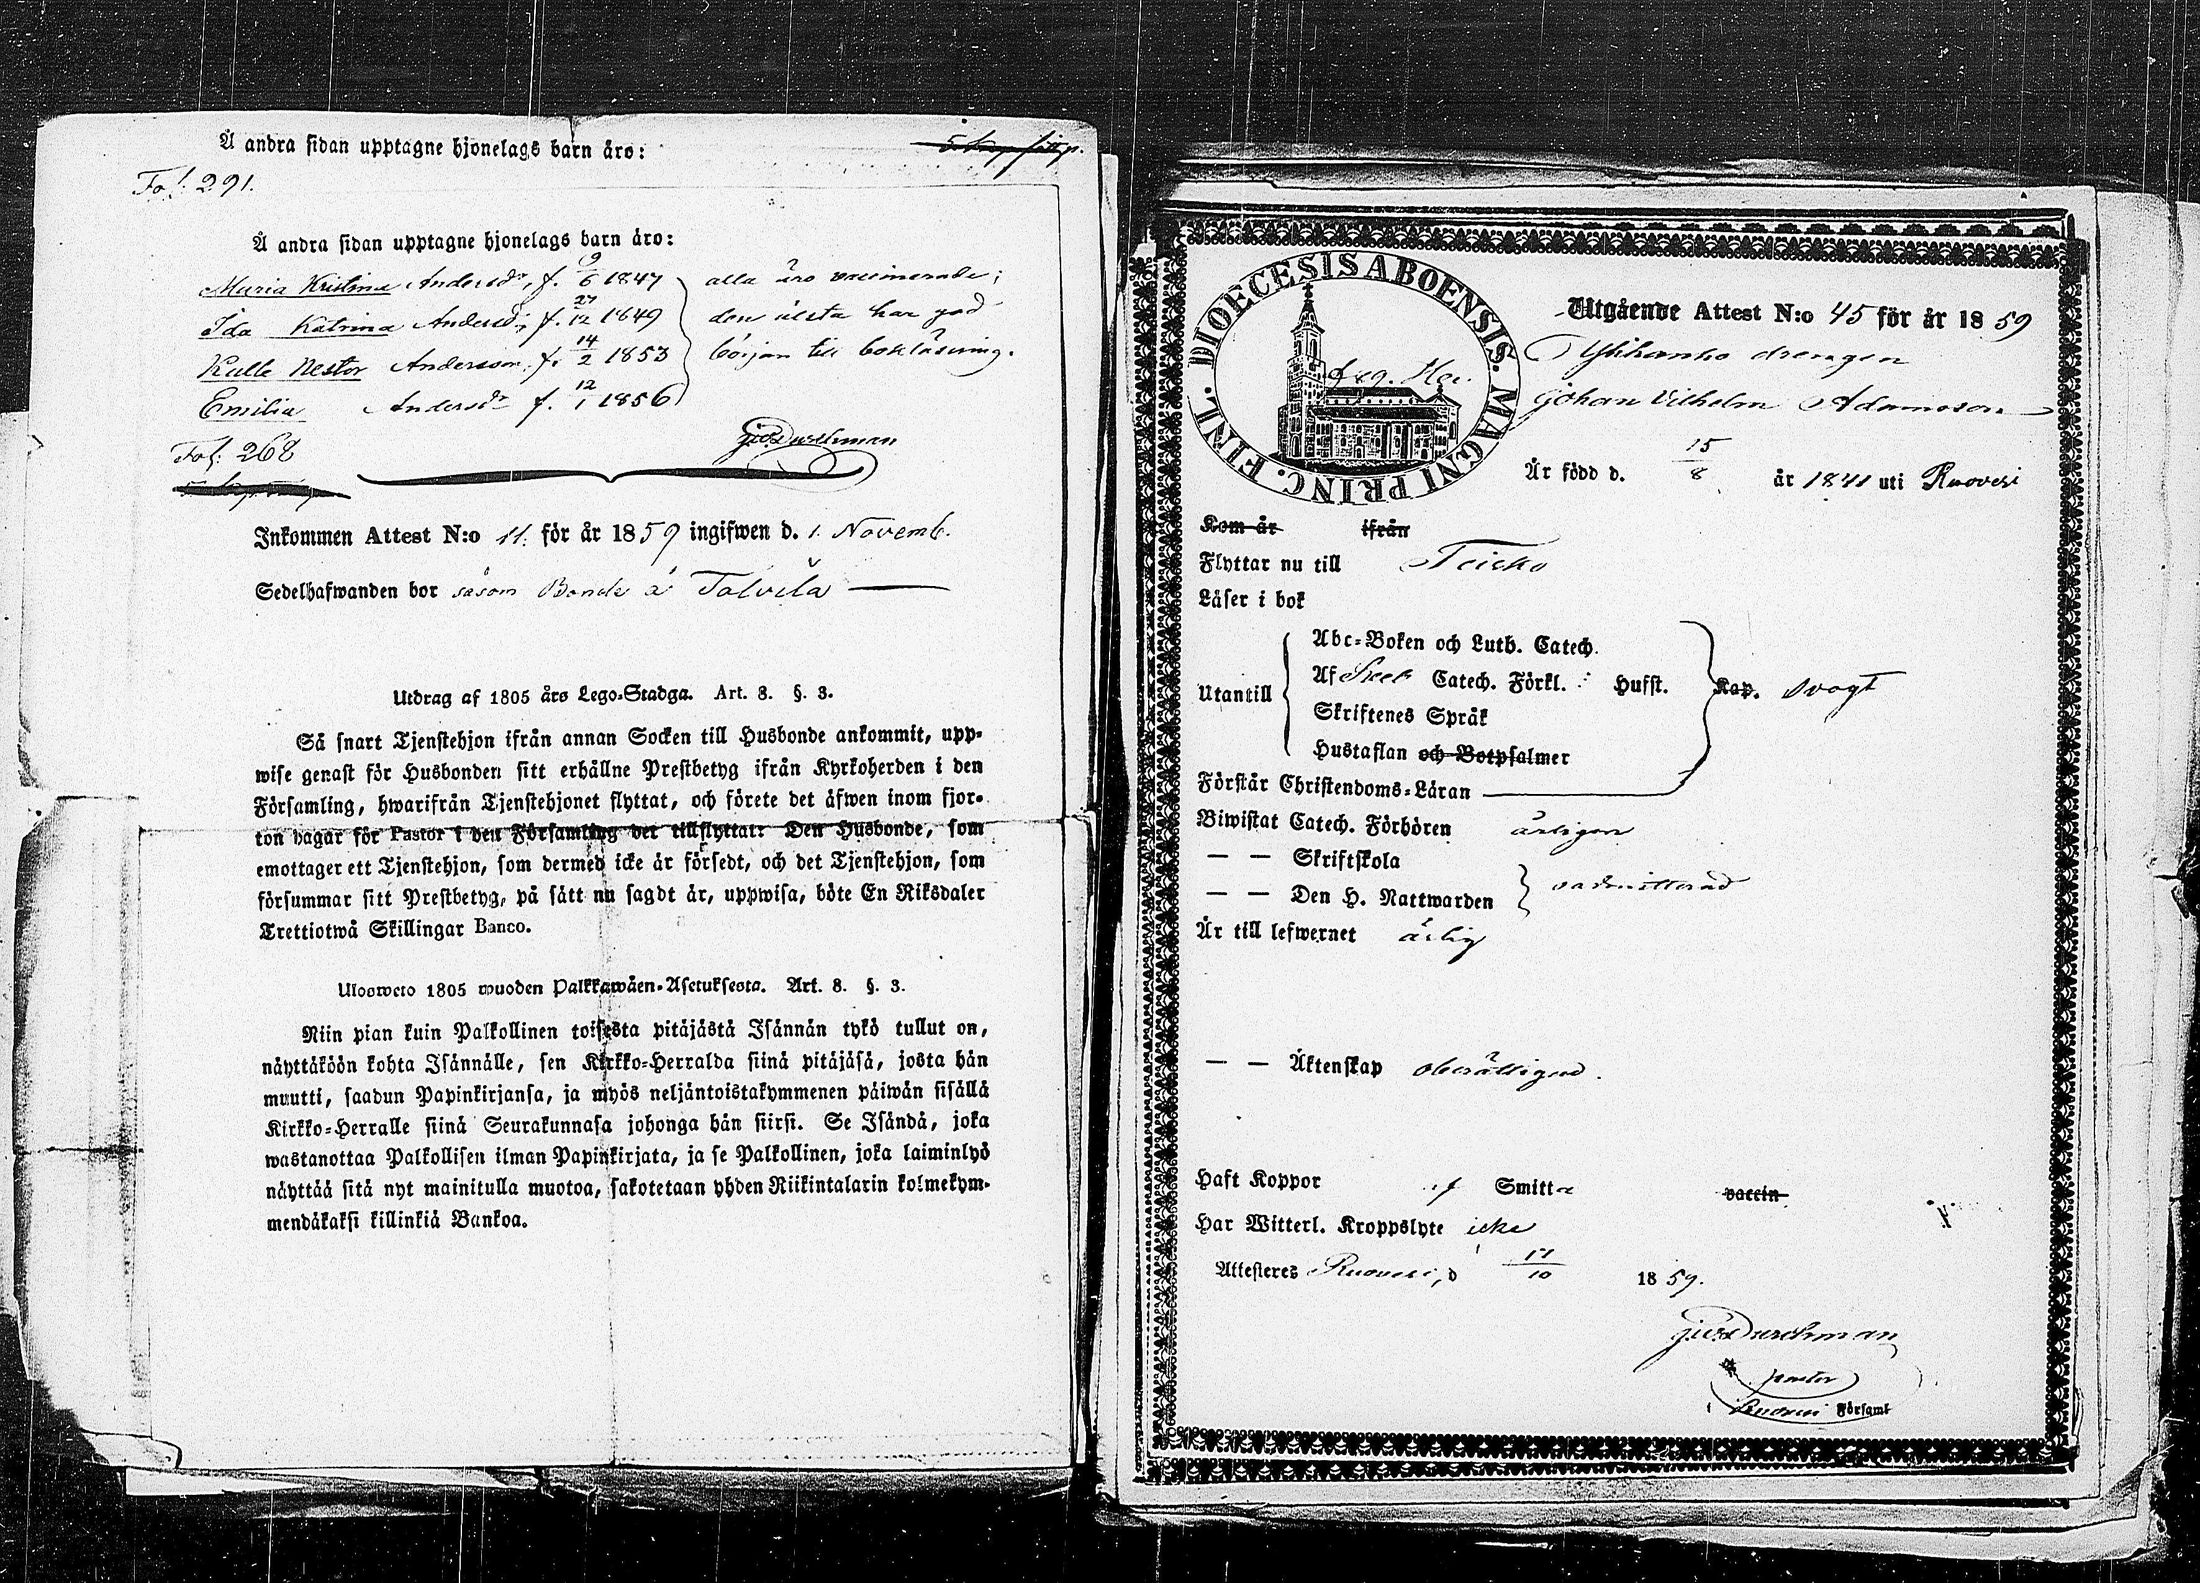 Å andra sidan upptagne hjonelags barn äro:
Fol. 291.
Å andra sidan upptagne hjonelags barn äro:
Maria Kristina Andersdr, f. 9/6 1847
Ida Katrina Andersdr, f. 27/12 1849
Kalle Nestor Andersson, f. 14/2 1853
Emilia Andersdr f. 12/1 1856
alla äro vaccinerade;
den älsta har god
början till bokläsning.
Fol: 268
Inkommen Attest N:o 11. för år 1859 ingifwen d. 1. Novemb.
Sedelhafwanden bor såsom Bonde å Talvila
Utdrag af 1805 års Lego-Stadga. Art. 8. §. 3.
Så snart Tjenstehjon ifrån annan Socken till Husbonde ankommit, upp-
wise genast för Husbonden sitt erhållne Prestbetyg ifrån Kyrkoherden i den
Församling, hwarifrån Tjenstehjonet flyttat, och förete det äfwen inom fjor-
ton dagar för Pastor i den Församling det tillflyttat: Den Husbonde, som
emottager ett Tjenstehjon, som dermed icke är försedt, och det Tjenstehjon, som
försummar sitt Prestbetyg, på sätt nu sagdt är, uppwisa, böte En Riksdaler
Trettiotwå Skillingar Banco.
Ulosweto 1805 wuoden Palkkawäen-Asetuksesta. Art. 8. §. 3.
Niin pian kuin Palkollinen toisesta pitäjästä Isännän tykö tullut on,
näyttäköön kohta Isännälle, sen Kirkko-Herralda siinä pitäjäsä, josta hän
muutti, saadun Papinkirjansa, ja myös neljäntoistakymmenen päiwän sisällä
Kirkko-Herralle siinä Seurakunnasa johonga hän siirsi. Se Isändä, joka
wastanottaa Palkollisen ilman Papinkirjata, ja se Palkollinen, joka laiminlyö
näyttää sitä nyt mainitulla muotoa, sakotetaan yhden Riikintalarin kolmekym-
mendäkaksi killinkiä Bankoa.
DIOECESIS ABOENSIS. MAGNI PRINC. FINL.
Utgående Attest N:o 45 för år 1859
drengen
Johan Vilhelm Adamsson
Är född d. 15/8 år 1841 uti Ruovesi
Kom år ifrån
Flyttar nu till Teisko
Läser i bok
Utantill
Abc-Boken och Luth. Catech.
Af Catech. Förkl. Husst. Kap. svagt
Skriftenes Språk
Hustaflan och Botpsalmer
Förstår Christendoms-Läran
Biwistat Catech. Förhören årligen
— — Skriftskola
— — Den H. Nattwarden oadmitterad
Är till lefwernet ärlig
— — Äktenskap oberättigad.
Haft Koppor Smitta vaccin
Har Witterl. Kroppslyte icke
Attesteres Ruovesi, d 17/10 1859.
pastor
i Ruovesi Församl